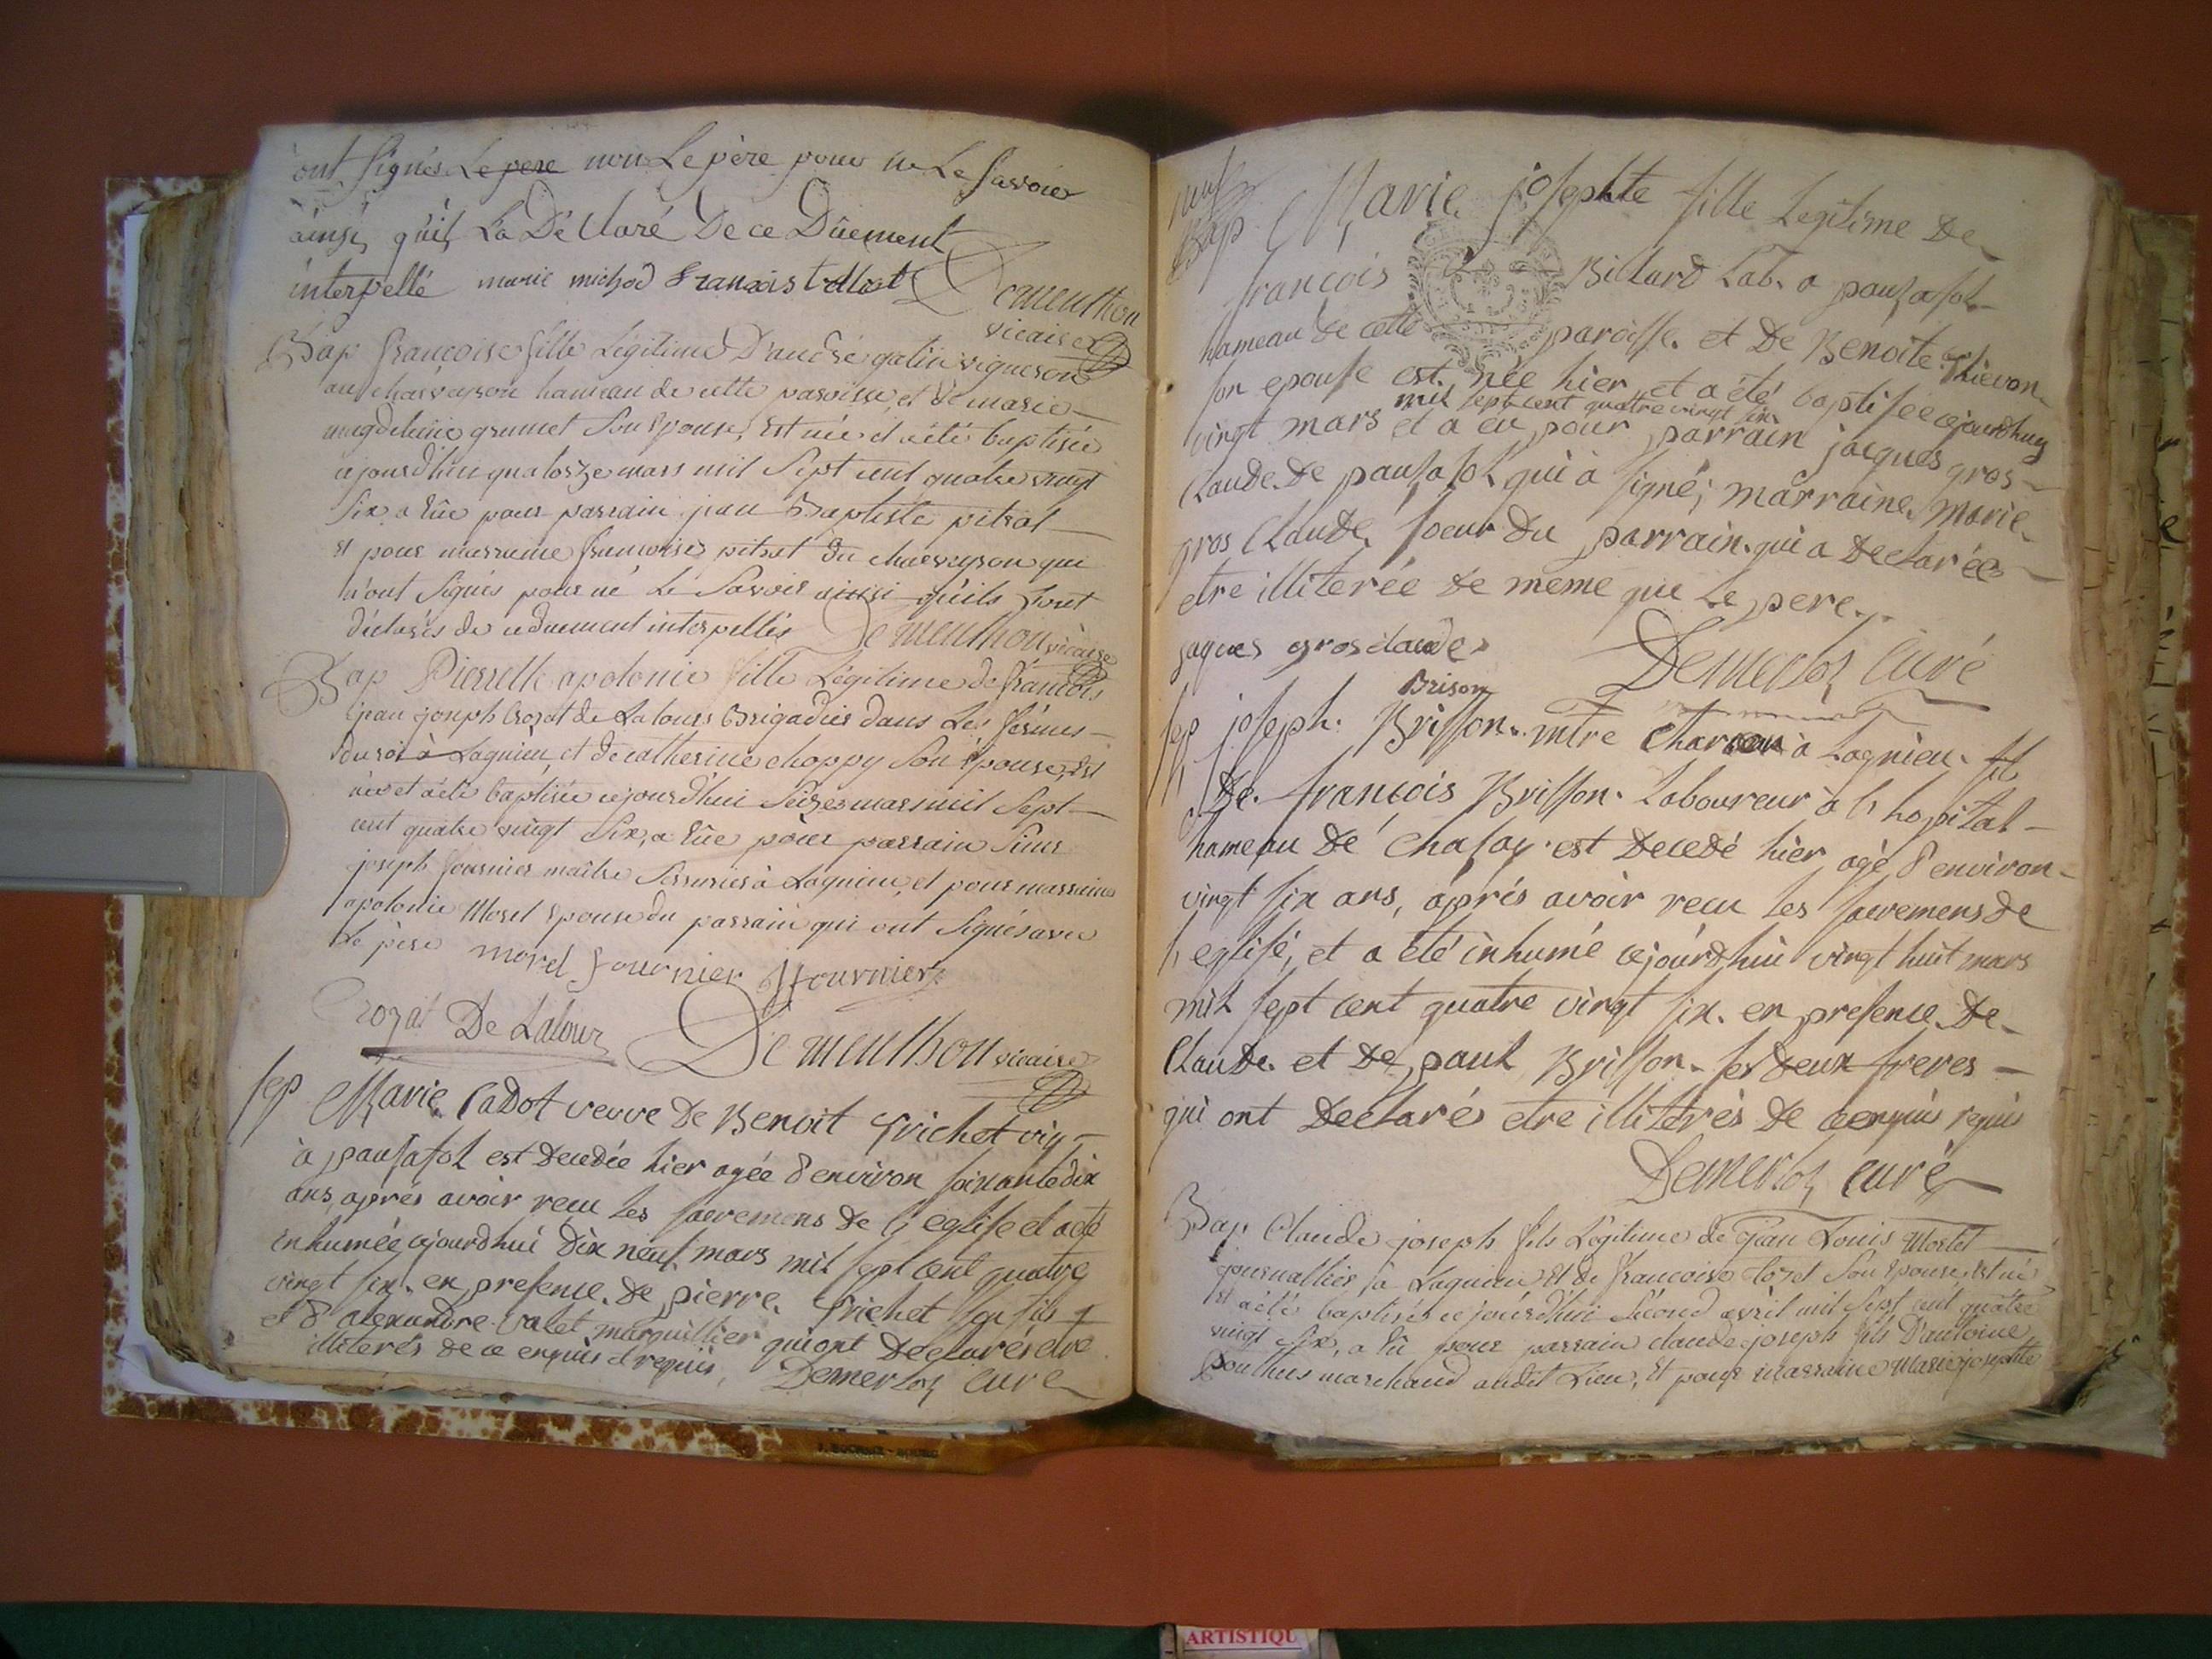 ont signés Le pere non Le père pour ne Le savoir
ainsi qu'il La Déclaré De ce Dûement
interpellé marie michod François
Dementhon
vicaire
Bap françoise fille Légitime D'andré gatin vigneron
au charveyron hameau de cette paroisse, et de marie
magdeleine grumet Son Epouse, Est née et a été baptisée
cejourd'hui quatorze mars mil Sept cent quatre vingt
Six a Eûe pour parrain jean Baptiste pitrat
et pour marraine françoise pitrat du charveyron qui
n'ont Signés pour ne Le Savoir ainsi qu'ils L'ont
déclarés de ce duement interpellés Dementhon vicaire
Bap Pierrette apolonie fille Légitime de françois
jean joseph Crozat de Latours Brigadier dans Les fermes
du roi à Lagnieu, et de catherine choppy Son Epouse, Est
née et a été baptisée cejourd'hui Seize mars mil Sept
cent quatre vingt Six, a Eûe pour parrain Sieur
joseph fournier maître Serrurier à Lagnieu, et pour marraine
apolonie Morel Epouse du parrain qui ont Signés avec
Le père morel fournier Jfournier
Crozat De Latour Dementhon vicaire
sep Marie Cadot veuve De Benoit Trichet vig
à pausafol est decedée hier agée d'environ soixante dix
ans, aprés avoir recu les sacremens de l'eglise et a été
inhumée cejourdhui dix neuf mars mil sept cent quatre
vingt six. en presence de pierre Trichet son fils
et d'alexandre valet marguillier qui ont Declarés etre
illiterés de ce enquis et requis, Demerloz Curé
neuf
Bap Marie josephte fille Legitime de
françois Billard Lab. a pausafol
hameau de cette paroisse. et De Benoite Thievon
son epouse est née hier et a été baptisée cejourdhuy
mil sept cent quatre vingt six
vingt mars et a eu pour parrain jacques gros
Claude. De pausafol qui à signé; marraine marie
gros Claude, soeur Du parrain. qui a Declarée
etre illiterée de meme que Le pere.
jaques grosclaude Demerloz Curé
Brison
sep joseph. Brisson. mtre à Lagnieu. fil
De. françois Brisson. Laboureur à l'hopital
hameau De Chasay. est Decedé hier agé d'environ
vingt six ans, aprés avoir recu les sacremens de
l'eglise, et a été inhumé cejourdhui vingt huit mars
mil sept cent quatre vingt six. en presence. De
Claude. et de paul Brisson. ses deux freres
qui ont Declarés etre illiterés De ce enquis requis
Demerloz curé
Bap Claude joseph fils Légitime de jean Louis Morlet
journallier à Lagnieu Et de francoise Cozet Son Epouse, Est né
Et a été baptisé ce jourd'hui Sécond avril mil Sept cent quatre
vingt Six, a Eû pour parrain claude joseph fils D'antoine
Ponthus marchand audit Lieu, Et pour marraine Marie josephte
ARTISTIQU